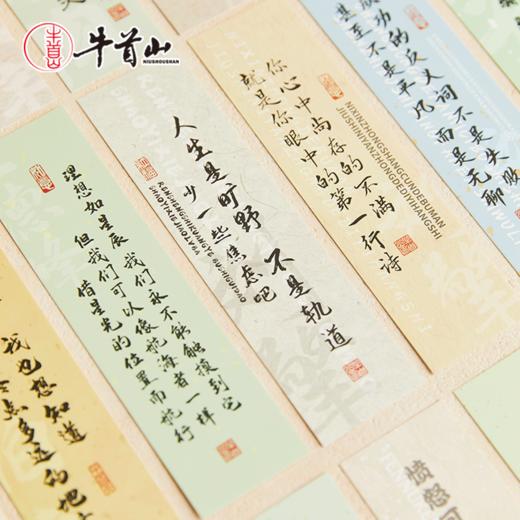 牛首山
NIUSHOUSHAN
理想如星辰 我们永不能触摸到它
但我们可以像航海者一样
借星光的位置而航行
人生是旷野 不是轨道
少一些焦虑吧
你心中尚存的不满
就是你眼中的第一行诗
NIXINZHONGSHANGCUNDEBUMAN
JIUSHINIYANZHONGDEDIYIHANGSHI
功的反义词不是失败
甚至不是平凡 而是无聊
我也想知道
点多远的地
愤怒可